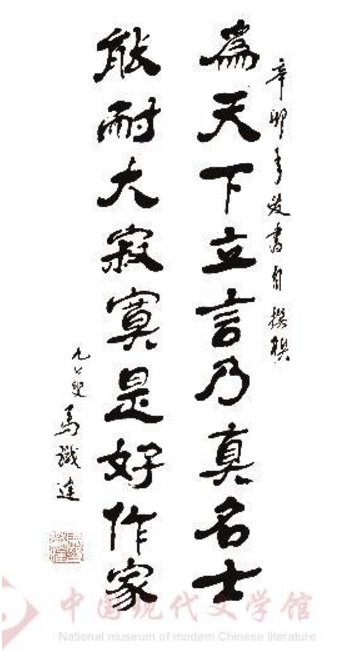 辛卯 書自撰
為天下立言乃真名士
能耐大寂寞是好作家
九七叟 馬識途
中国现代文学馆
National museum of modern Chinese literature